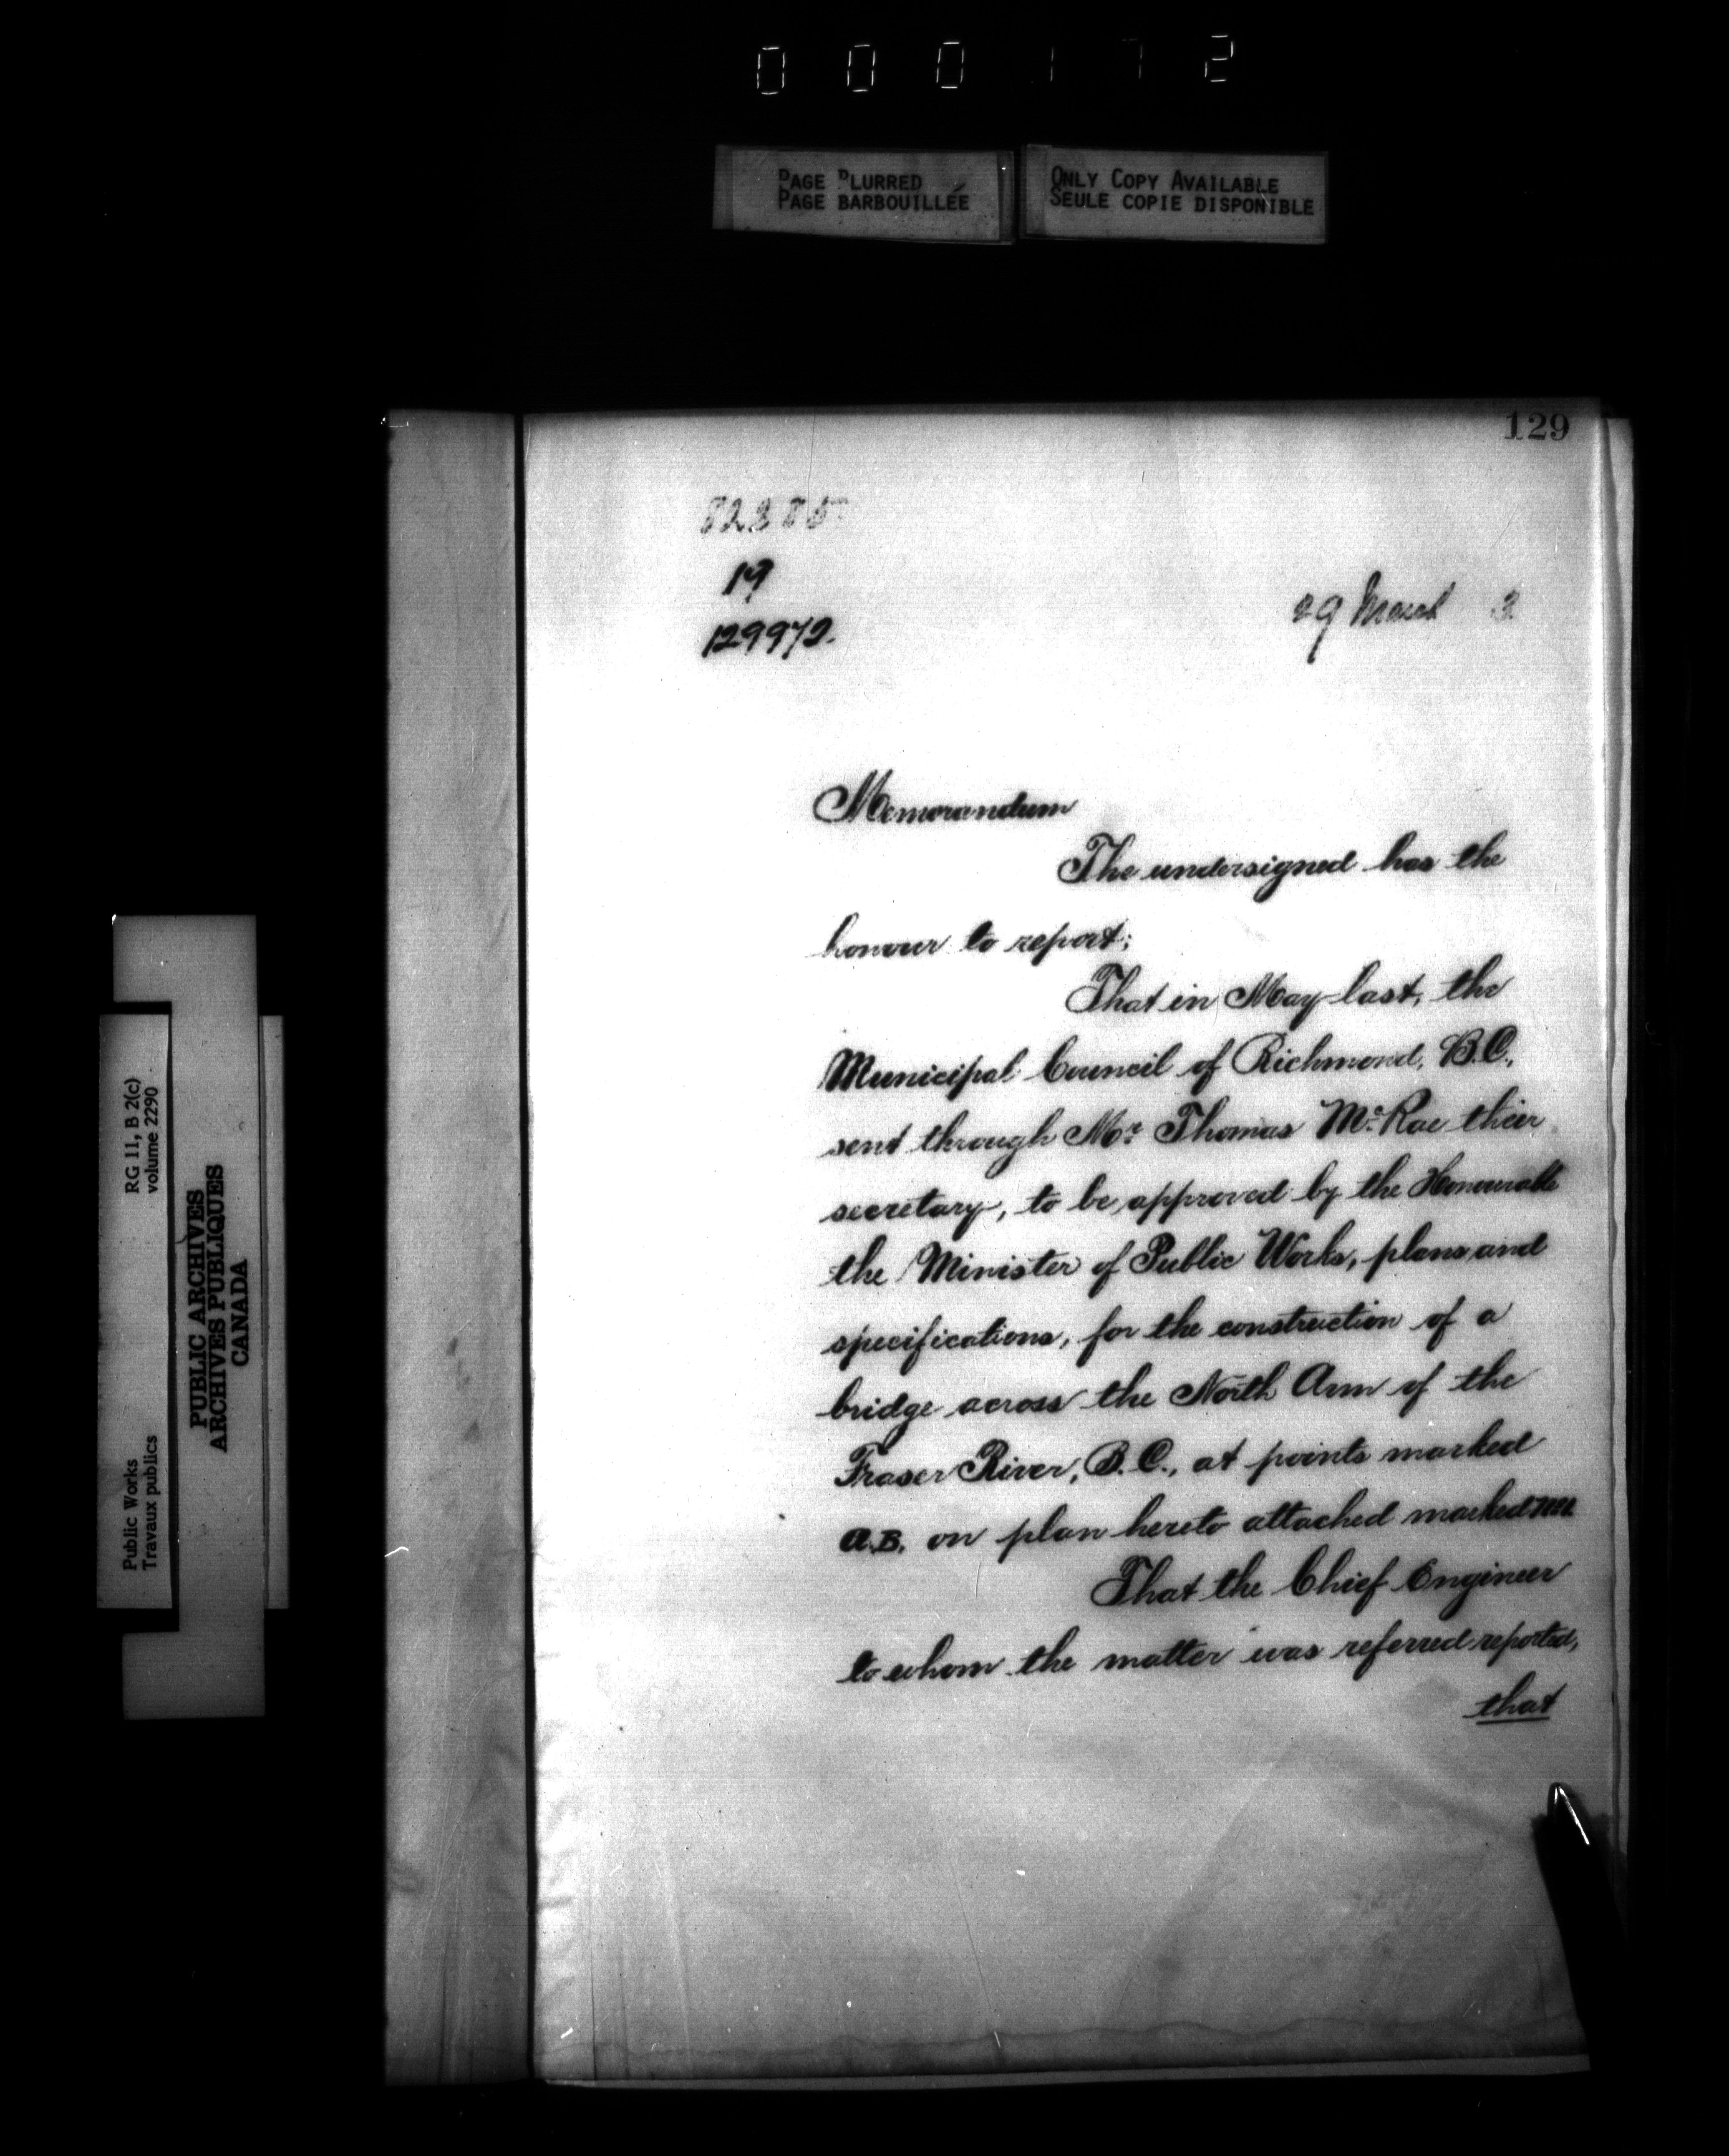 000172
PAGE BLURRED
PAGE BARBOUILLÉE
ONLY COPY AVAILABLE
SEULE COPIE DISPONIBLE
129
82385
19
129972.
29 March 3
Memorandum
The undersigned has the
honour to report;
That in May last, the
Municipal Council of Richmond, B.C.,
sent through Mr Thomas McRae their
secretary, to be approved by the Honourable
the Minister of Public Works, plans and
specifications, for the construction of a
bridge across the North Arm of the
Fraser River, B.C., at points marked
A.B. on plan hereto attached marked
That the Chief Engineer
to whom the matter was referred reported,
that
Public Works
Travaux publics
RG 11, B 2(c)
volume 2290
PUBLIC ARCHIVES
ARCHIVES PUBLIQUES
CANADA